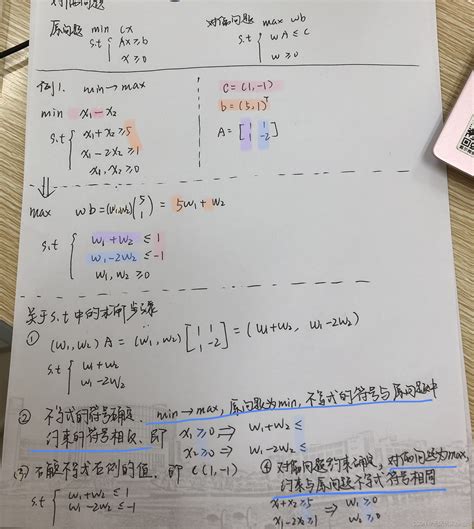 对偶问题
原问题 min cx
s.t { Ax≥b
x≥0
对偶问题 max wb
s.t { wA≤c
w≥0
例1. min→max
min x₁-x₂
s.t { x₁+x₂≥5
x₁-2x₂≥1
x₁,x₂≥0
c=(1,-1)
b=(5,1)ᵀ
A=[1 1
1 -2]
⇓
max wb=(w₁,w₂)(5
1) = 5w₁+w₂
s.t { w₁+w₂≤1
w₁-2w₂≤-1
w₁,w₂≥0
关于s.t中的求解步骤
① (w₁,w₂)A=(w₁,w₂)[1 1
1 -2]=(w₁+w₂, w₁-2w₂)
s.t { w₁+w₂
w₁-2w₂
② 不等式的符号确定. min→max,原问题为min,不等式的符号与原问题中
约束的符号相反,即 x₁≥0 ⇒ w₁+w₂≤
x₂≥0 ⇒ w₁-2w₂≤
③ 不等式右侧的值.即c(1,-1)
s.t { w₁+w₂≤1
w₁-2w₂≤-1
④ 对偶问题约束确定,对偶问题为max,
约束与原问题不等式符号相同
x₁+x₂≥5 ⇒ w₁≥0
x₁-2x₂≥1 w₂≥0